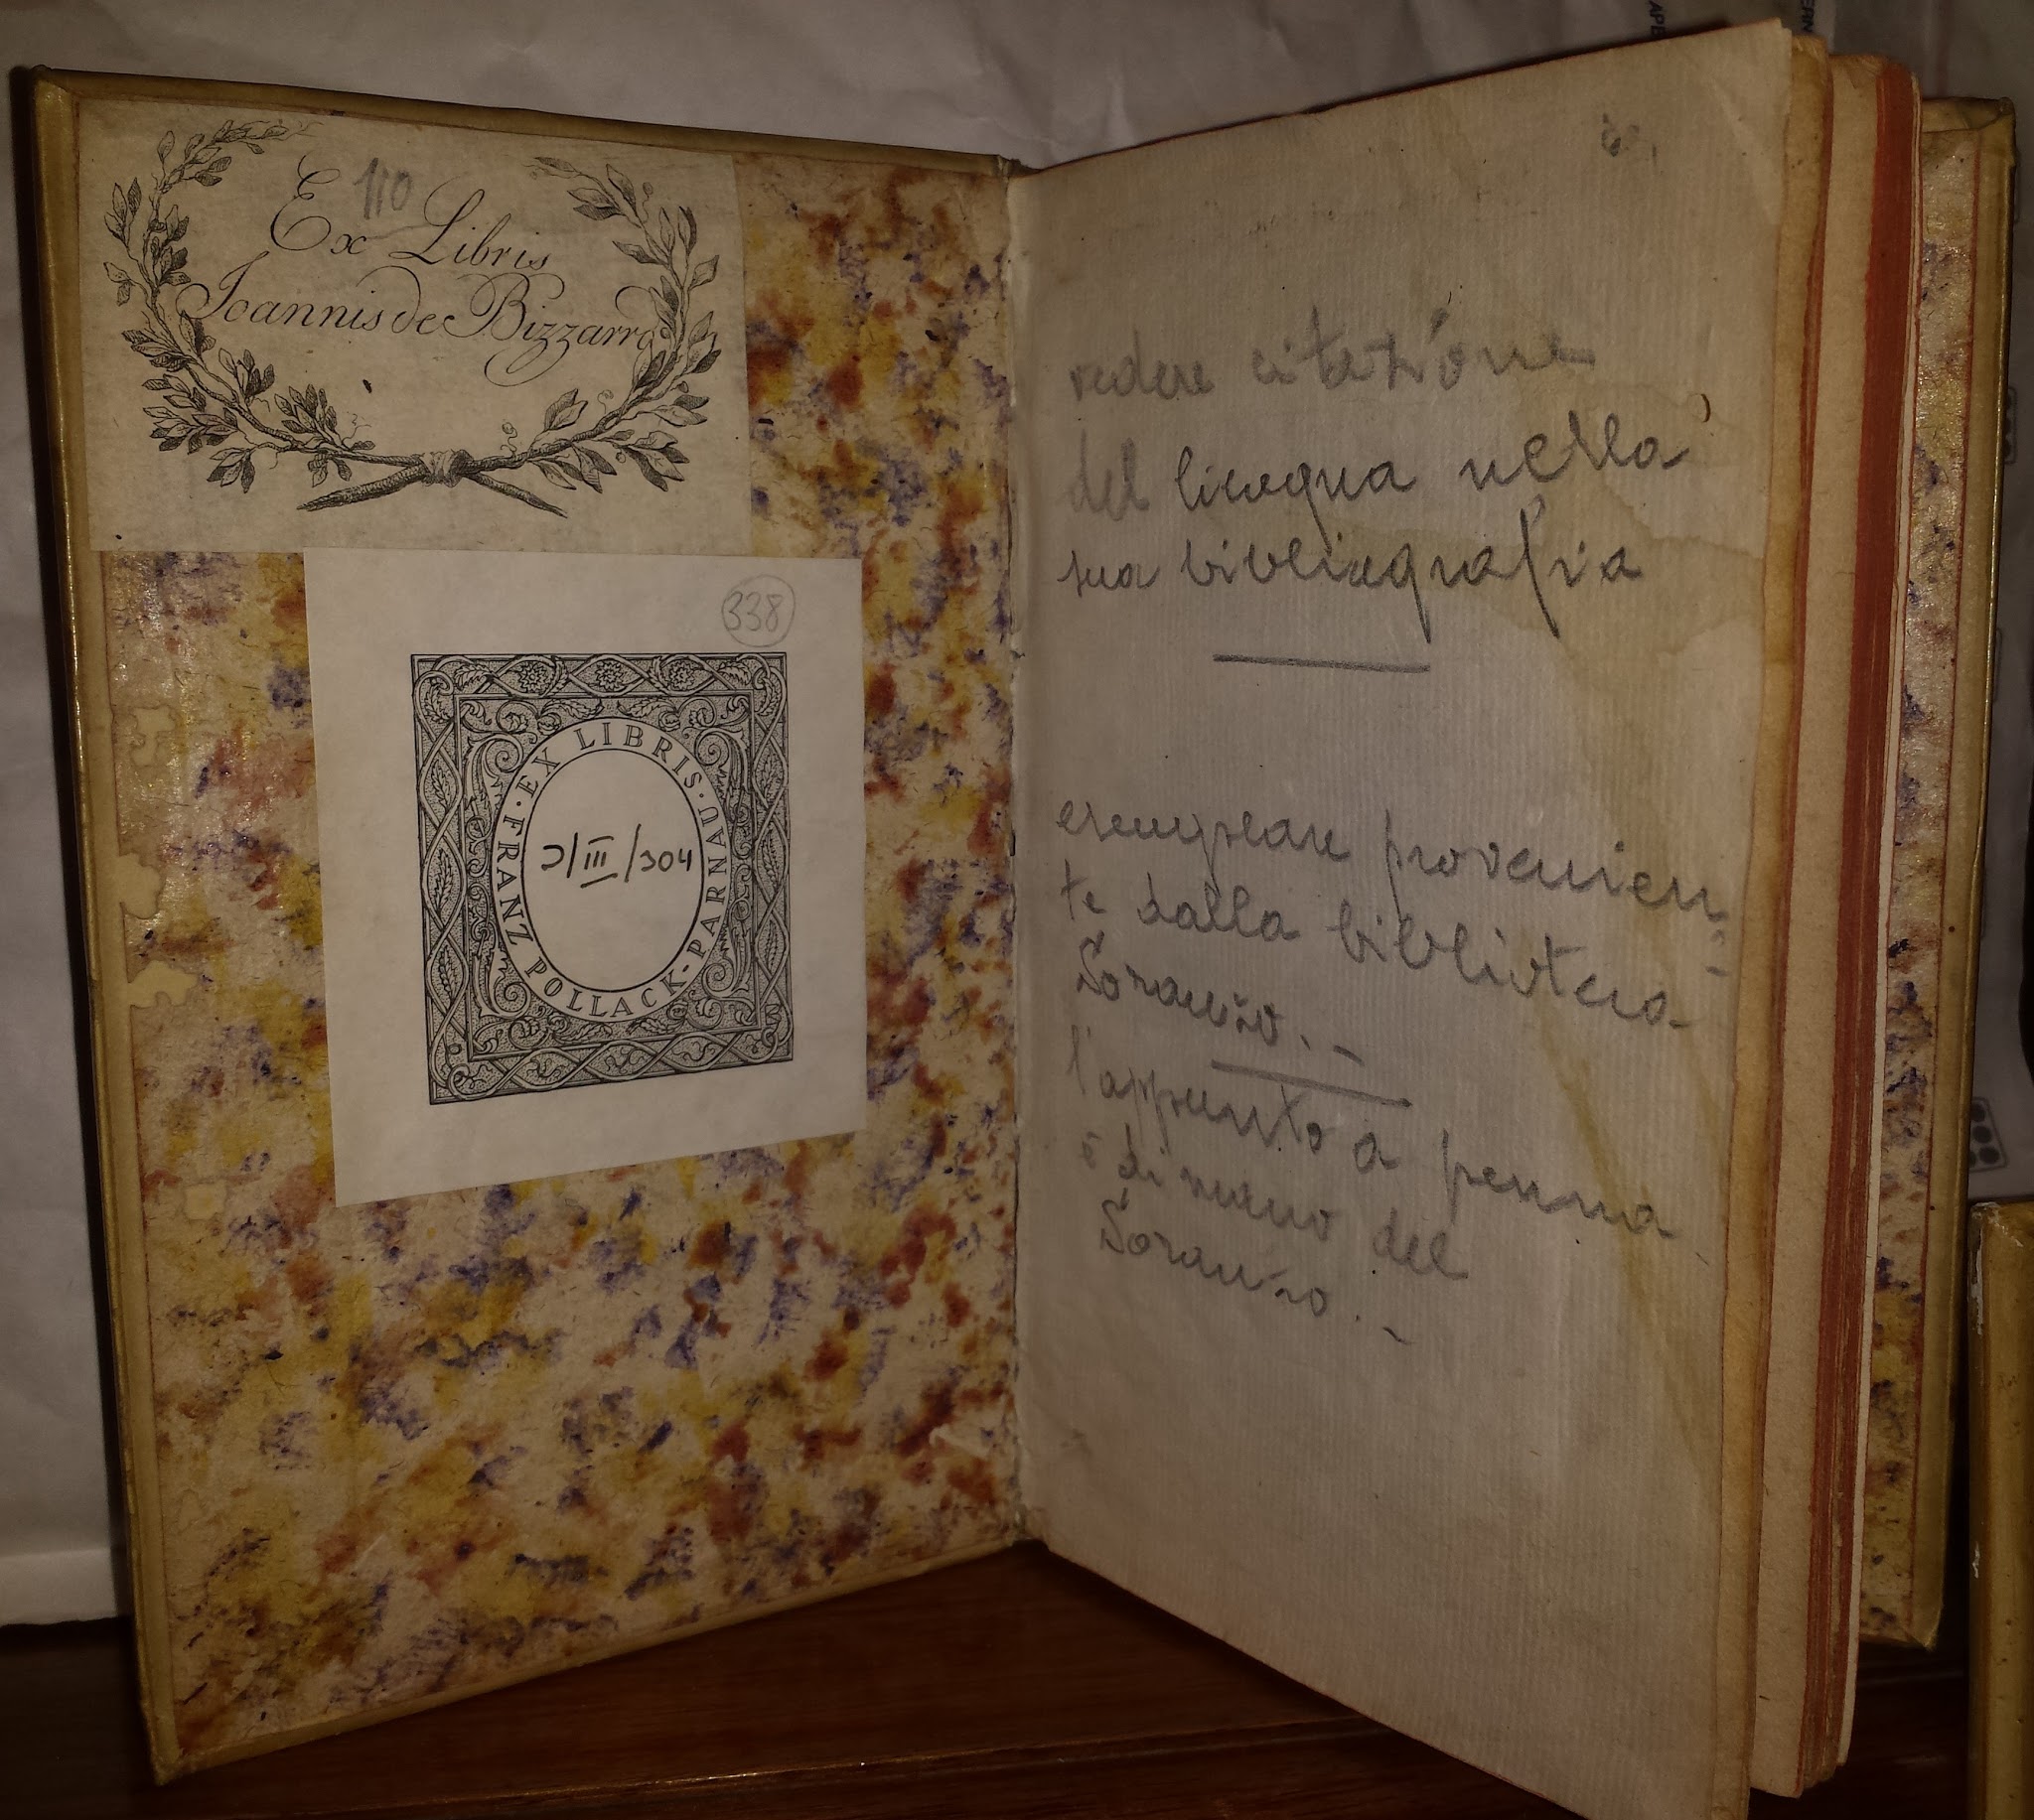 110
Ex Libris
Joannis de Bizzarro
338
· EX LIBRIS · FRANZ POLLACK-PARNAU
J/III/304
vedere citazione
del Cicogna nella
sua bibliografia
esemplare provenien-
te dalla biblioteca
Soranzo. -
l'appunto a penna
è di mano del
Soranzo. -